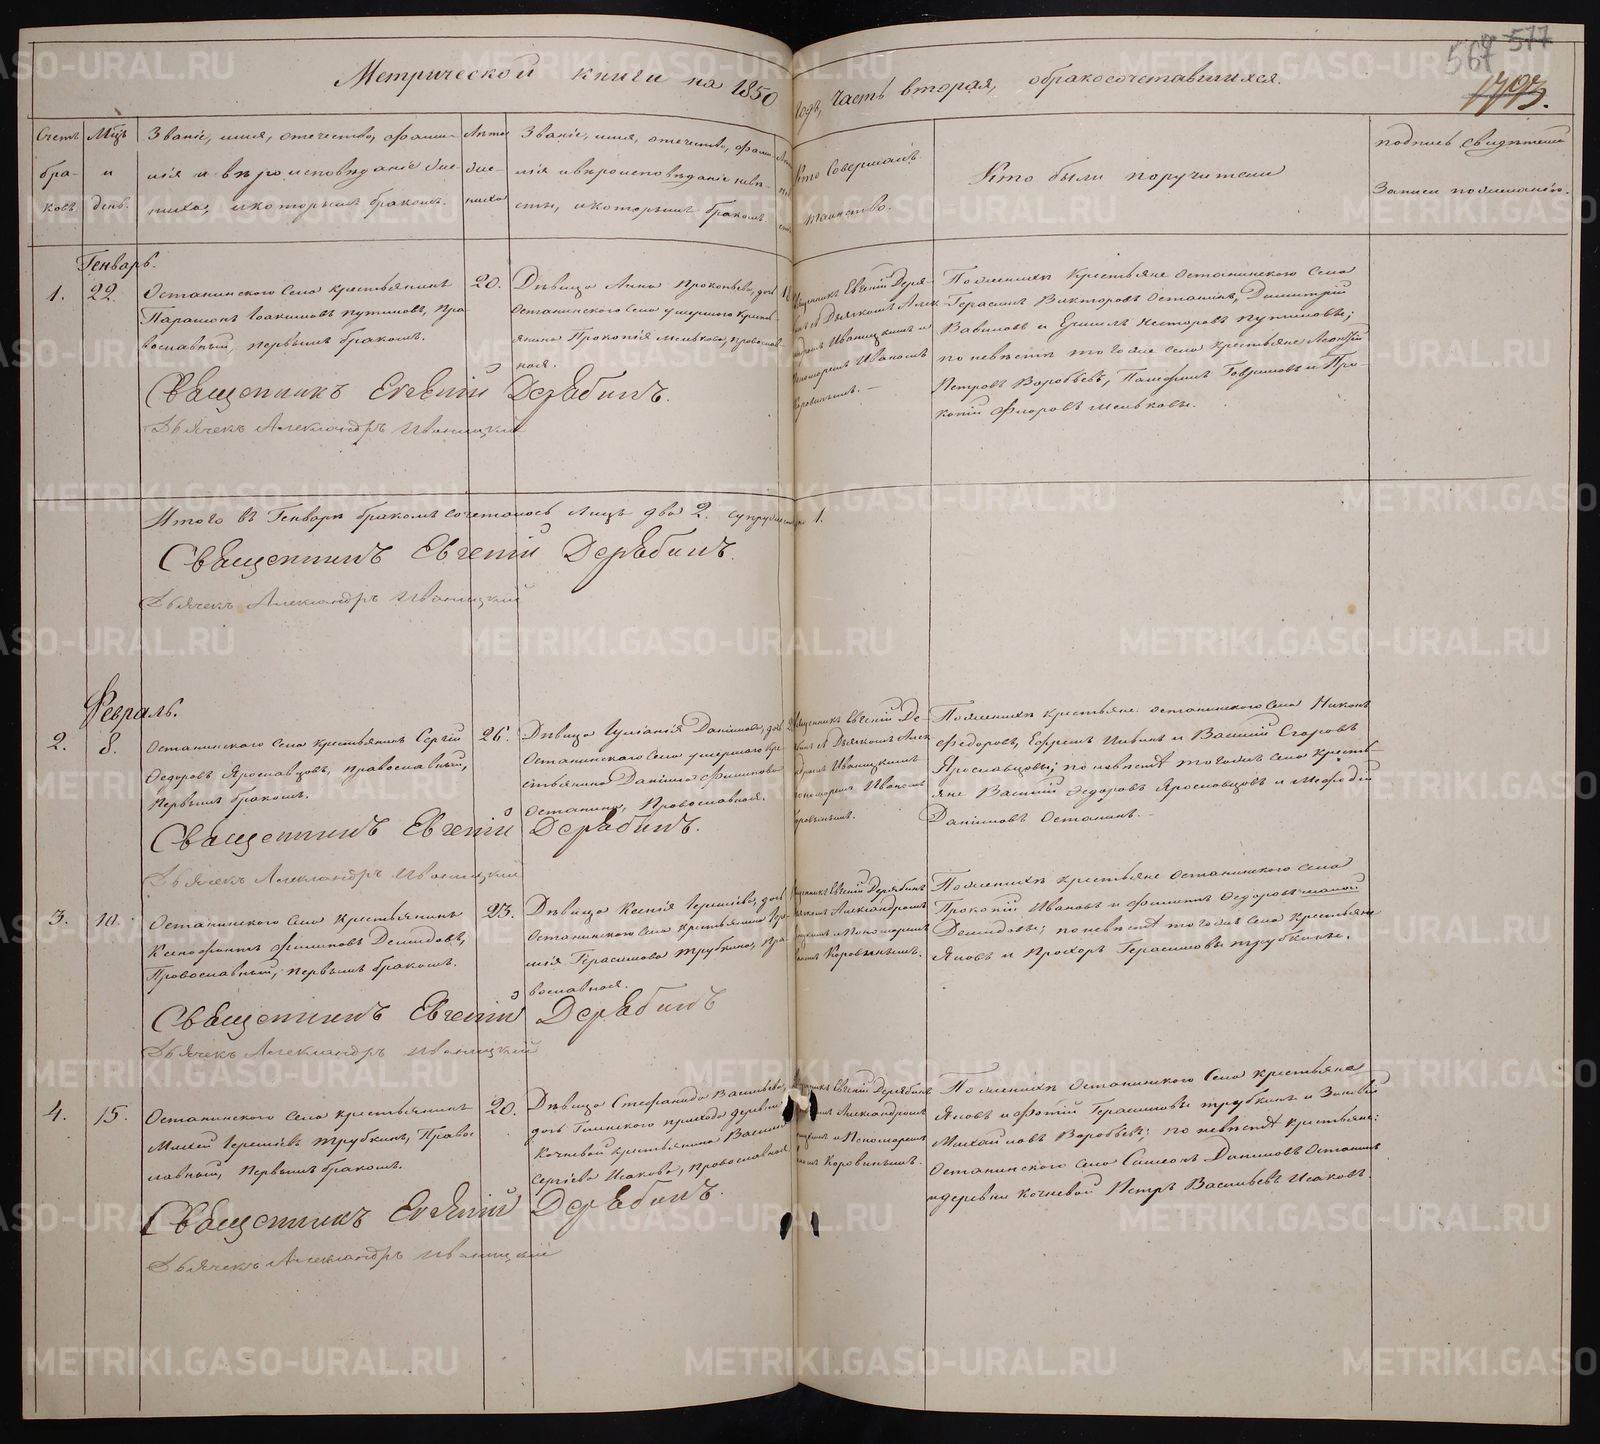 567 577
1793.
Метрической книги на 1850 годъ, часть вторая, обракосочетавшихся
Счетъ браковъ.
Мцъ и день.
Званіе, имя, отечество, фами-
лія и вѣроисповѣданіе же-
ниха, и которымъ бракомъ.
Лѣта же-
ниха
Званіе, имя, отечество, фами-
лія и вѣроисповѣданіе невѣ-
сты, и которымъ бракомъ.
Кто совершалъ
таинство.
Кто были поручители
подпись свидѣтелей
записи по желанію.
Генварь.
1. 22.
Останинского села крестьянинъ
Парамонъ Іоакимовъ Путиловъ, пра
вославный, первымъ бракомъ.
20.
Дѣвица Анна Прокопьева, дочь
Останинского села умершаго крест-
янина Прокопія Мелькова, православ-
ная.
Священникъ Евгеній Деря-
Иваницкимъ и
Пономаремъ Иваномъ
По женихѣ крестьяне Останинского села
Герасимъ Викторовъ Останинъ, Димитрій
Вавиловъ и Ермилъ Несторовъ Путиловы;
по невѣстѣ того же села крестьяне Леонтій
Петровъ Воробьевъ, Памфилъ Гавриловъ и Про-
копій Флоровъ Мельковы.
Священникъ Евгеній Дерябинъ.
Дьячекъ Александръ Иваницкій
Итого въ Генварѣ бракомъ сочеталось лицъ два 2. супружество 1.
Священникъ Евгеній Дерябинъ.
Дьячекъ Александръ Иваницкій
Февраль.
2. 8.
Останинского села крестьянинъ Сергій
Ѳедоровъ Ярославцовъ, православный,
первымъ бракомъ.
26.
Дѣвица Іуліанія Данилова, дочь
Останинского села умершаго кре-
стьянина Данила Филипова
Останина, православная.
Священникъ Евгеній Де-
Иваницкимъ
пономаремъ Иваномъ
По женихѣ крестьяне Останинского села Никонъ
Федоровъ, Ефремъ Ильинъ и Василій Егоровъ
Ярославцовы; по невѣстѣ того же села кресть-
яне Василій Ѳедоровъ Ярославцовъ и Меѳодій
Даниловъ Останинъ.
Священникъ Евгеній Дерябинъ.
Дьячекъ Александръ Иваницкій
3. 10.
Останинского села крестьянинъ
Ксенофонтъ Филиповъ Демидовъ,
православный, первымъ бракомъ.
23.
Дѣвица Ксенія Іереміева, дочь
Останинского села крестьянина Іере-
мія Герасимова Трубкина, пра-
вославная.
Евгеній Дерябинъ
Александромъ
и Пономаремъ
Коровинымъ.
По женихѣ крестьяне Останинского села
Прокопій Ивановъ и Филиппъ Ѳедоровъ
Демидовы; по невѣстѣ того же села крестьяне
Яковъ и Прохоръ Герасимовы Трубкины.
Священникъ Евгеній Дерябинъ
Дьячекъ Александръ Иваницкій
4. 15.
Останинского села крестьянинъ
Михей Іереміевъ Трубкинъ, право
славный, первымъ бракомъ.
20.
Дѣвица Стефанида Васильева,
дочь прихода деревни
Кочневой крестьянина Василія
Сергіева Исакова, православная
Евгеній Дерябинъ
Александромъ
и Пономаремъ
Коровинымъ.
По женихѣ Останинского села крестьяне
Яковъ и Фотій Герасимовы Трубкины и Зиновій
Михайловъ Воробьевъ; по невѣстѣ крестьяне:
Останинского села Симеонъ Даниловъ Останинъ
и деревни Кочневой Петръ Васильевъ Исаковъ.
Священникъ Евгеній Дерябинъ.
Дьячекъ Александръ Иваницкій
METRIKI.GASO-URAL.RU